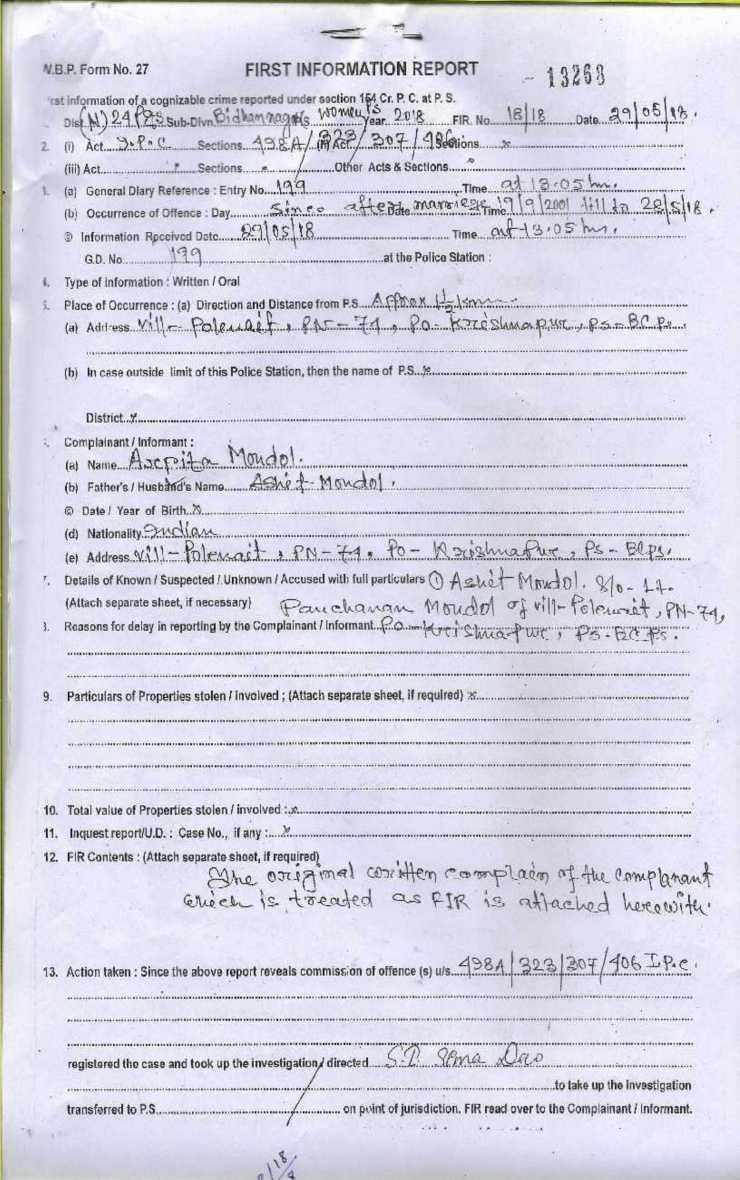 W.B.P. Form No. 27 FIRST INFORMATION REPORT - 13263
rst information of a cognizable crime reported under section 154 Cr. P. C. at P. S.
Dist (N) 24 Pgs Sub-Divn. Bidhannagar P.S. Women PS Year 2018 FIR. No. 18/18 Date 29/05/18.
2. (i) Act I.P.C Sections 498A/323/307/406 (ii) Act Sections x
(iii) Act Sections Other Acts & Sections
(a) General Diary Reference : Entry No. 199 Time at 13.05 hrs.
(b) Occurrence of Offence : Day since after marriage Date Time 19/9/2001 till to 28/5/18.
© Information Received Date 29/05/18 Time at 13.05 hrs.
G.D. No. 199 at the Police Station :
4. Type of Information : Written / Oral
5. Place of Occurrence : (a) Direction and Distance from P.S. Approx 1½ kmr.
(a) Address Vill- Polenait, PN-74, Po- Krishnapur, Ps- BCPs.
(b) In case outside limit of this Police Station, then the name of P.S. x
District x
Complainant / Informant :
(a) Name Arpita Mondol.
(b) Father's / Husband's Name Ashit Mondol.
© Date / Year of Birth x
(d) Nationality Indian
(e) Address Vill- Polenait, PN-74, Po- Krishnapur, Ps- BCPs.
7. Details of Known / Suspected / Unknown / Accused with full particulars ① Ashit Mondol. S/o- Lt.
(Attach separate sheet, if necessary) Panchanan Mondol of vill- Polenait, PN-74,
Reasons for delay in reporting by the Complainant / Informant Po- Krishnapur, Ps- BCPs.
9. Particulars of Properties stolen / involved ; (Attach separate sheet, if required) x
10. Total value of Properties stolen / involved : x
11. Inquest report/U.D. : Case No., if any : x
12. FIR Contents : (Attach separate sheet, if required)
The original written complain of the complanant
which is treated as FIR is attached herewith.
13. Action taken : Since the above report reveals commission of offence (s) u/s. 498A/323/307/406 I.P.C.
registered the case and took up the investigation / directed S.I. Soma Das
to take up the investigation
transferred to P.S. on point of jurisdiction. FIR read over to the Complainant / Informant.